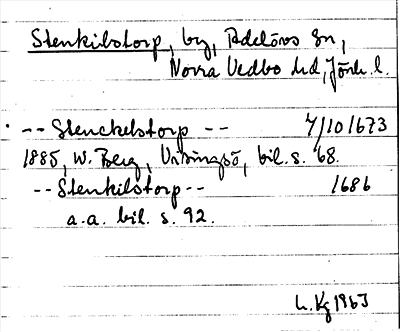 Stenkilstorp, by, Adelövs sn,
Norra Vedbo hd, Jönk. l.
-- Stenckelstorp -- 7/10 1673
1885, W. Berg, Visingsö, bil. s. 68.
-- Stenkilstorp -- 1686
a.a. bil. s. 92.
1963